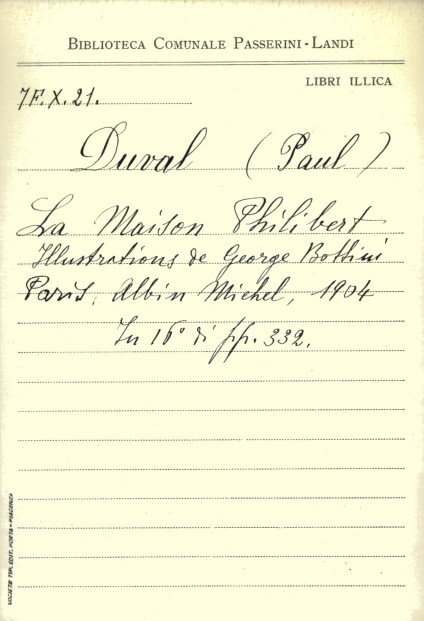 BIBLIOTECA COMUNALE PASSERINI-LANDI
LIBRI ILLICA
7F.X.21.
Duval (Paul)
La Maison Philibert
Illustrations de George Bottini
Paris, Albin Michel, 1904
In 16° di pp. 332.
SOCIETÀ TIP. EDIT. PORTA - PIACENZA